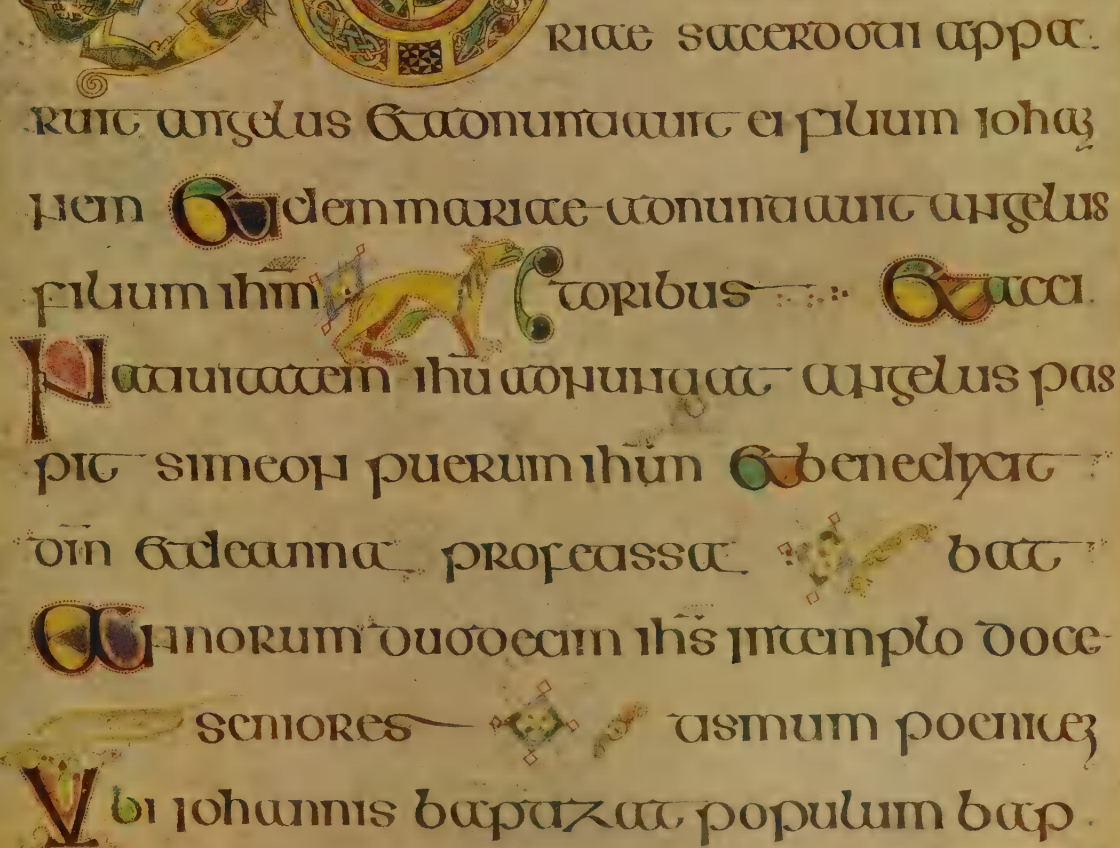 riae sacerdoti appa.
ruit angelus Etadnuntiauit ei filium iohan
nem Etidem mariae adnuntiauit angelus
filium ihm̄ toribus Etacci.
Natiuitatem ihū adnuntiat angelus pas
pit simeon puerum ihūm Etbenedixit
dm̄ Etdeanna profetissa bat
Annorum duodecim ihs̄ intemplo doce
seniores tismum poeniten
Vbi iohannis baptizat populum bap.